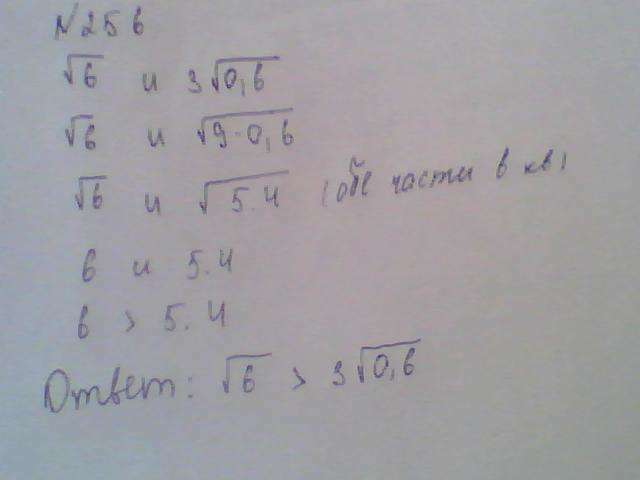 №256
√6 и 3√0,6
√6 и √9·0,6
√6 и √5.4 (обе части в кв)
6 и 5.4
6 > 5.4
Ответ: √6 > 3√0,6